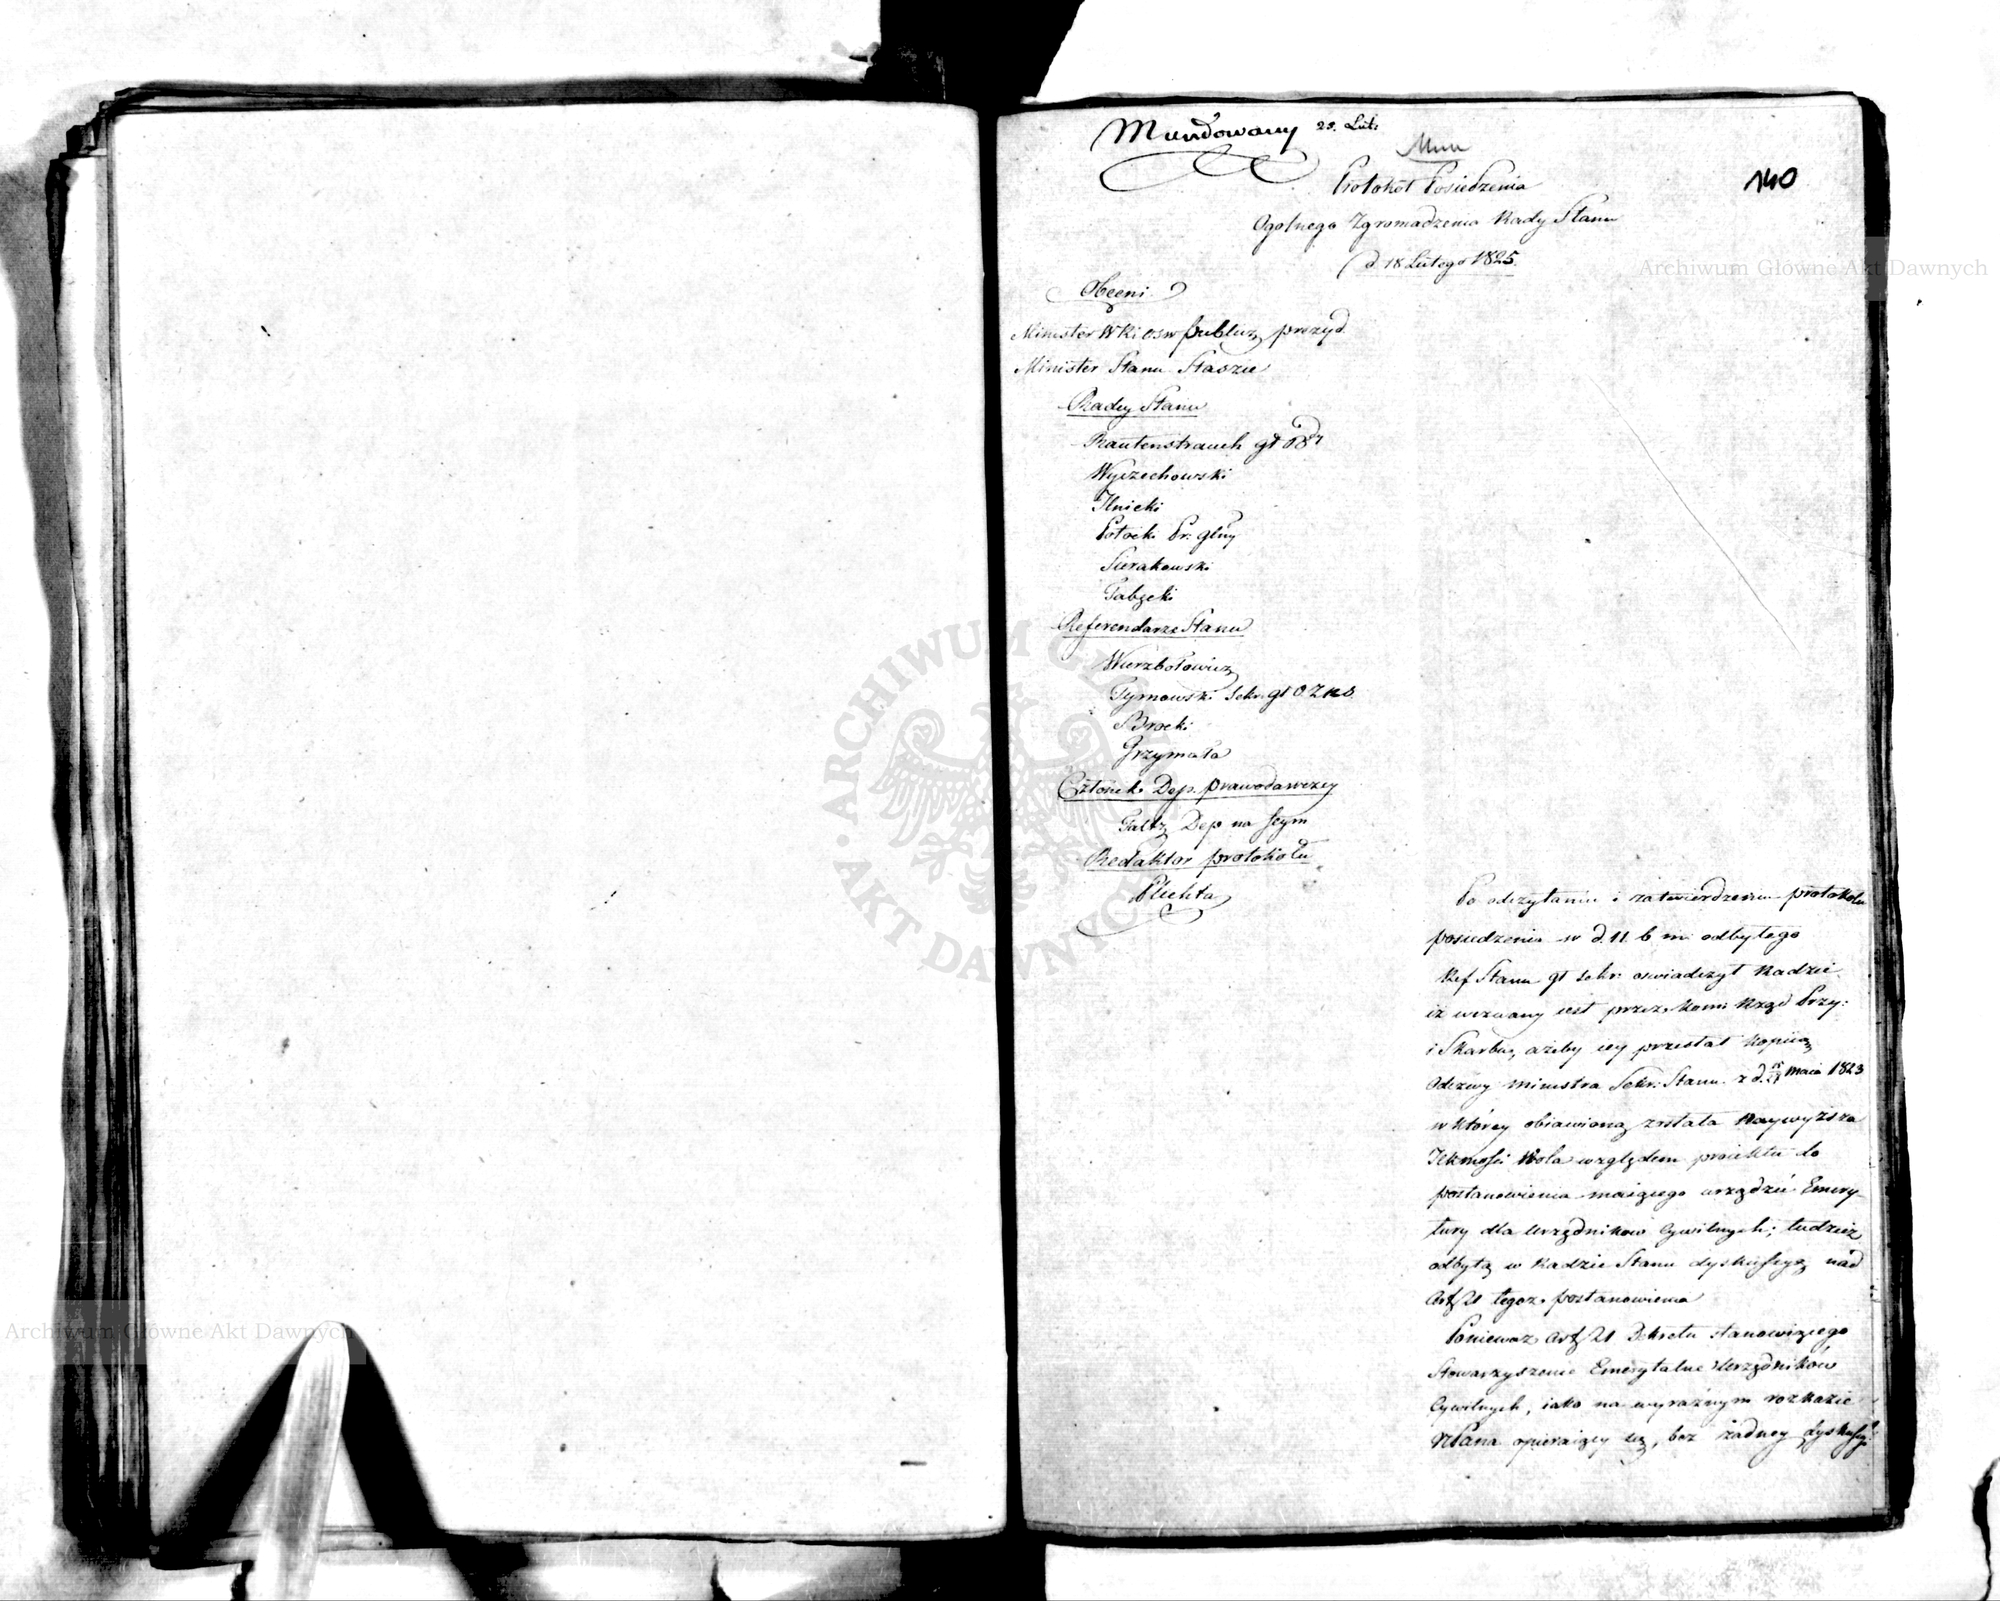 Mundowany 28. Lut:
140
Protokół Posiedzenia
Ogolnego Zgromadzenia Rady Stanu
d. 18 Lutego 1825.
Obecni
Minister WR i Osw publicz prezyd.
Minister Stanu Staszic
Radcy Stanu
Rautenstrauch gł
Wyczechowski
Ilnicki
Potocki Pr. głny
Sierakowski
Tabęcki
Referendarze Stanu
Wierzbołowicz
Tymowski Sekr. gł O Z RS.
Brocki
Grzymała
Członek Dep. prawodawczey
Faltz Dep na Seym
Redaktor protokołu
Plichta
Po odczytaniu i zatwierdzeniu protokołu
posiedzenia w d. 11. b m. odbytego
Ref Stanu gł Sekr. oswiadczył Radzie
iż wezwany iest przez Kom: Rząd Przy:
i Skarbu, ażeby iey przesłał kopiią
Odezwy Ministra Sekr: Stanu z d. Maia 1823
w którey obiawioną została Naywyższa
JKmości Wola względem proiektu do
postanowienia maiącego urządzić Emery-
tury dla Urzędnikow Cywilnych; tudzież
odbytą w Radzie Stanu dyskussyą nad
Art 21 tegoz postanowienia
Poniewaz Art 21 Dekretu stanowiącego
Stowarzyszenie Emerytalne Urzędników
Cywilnych, iako na wyraźnym rozkazie
NPana opieraiący się, bez żadney dyskussyi
Archiwum Główne Akt Dawnych
Archiwum Główne Akt Dawnych
ARCHIWUM GŁÓWNE AKT DAWNYCH